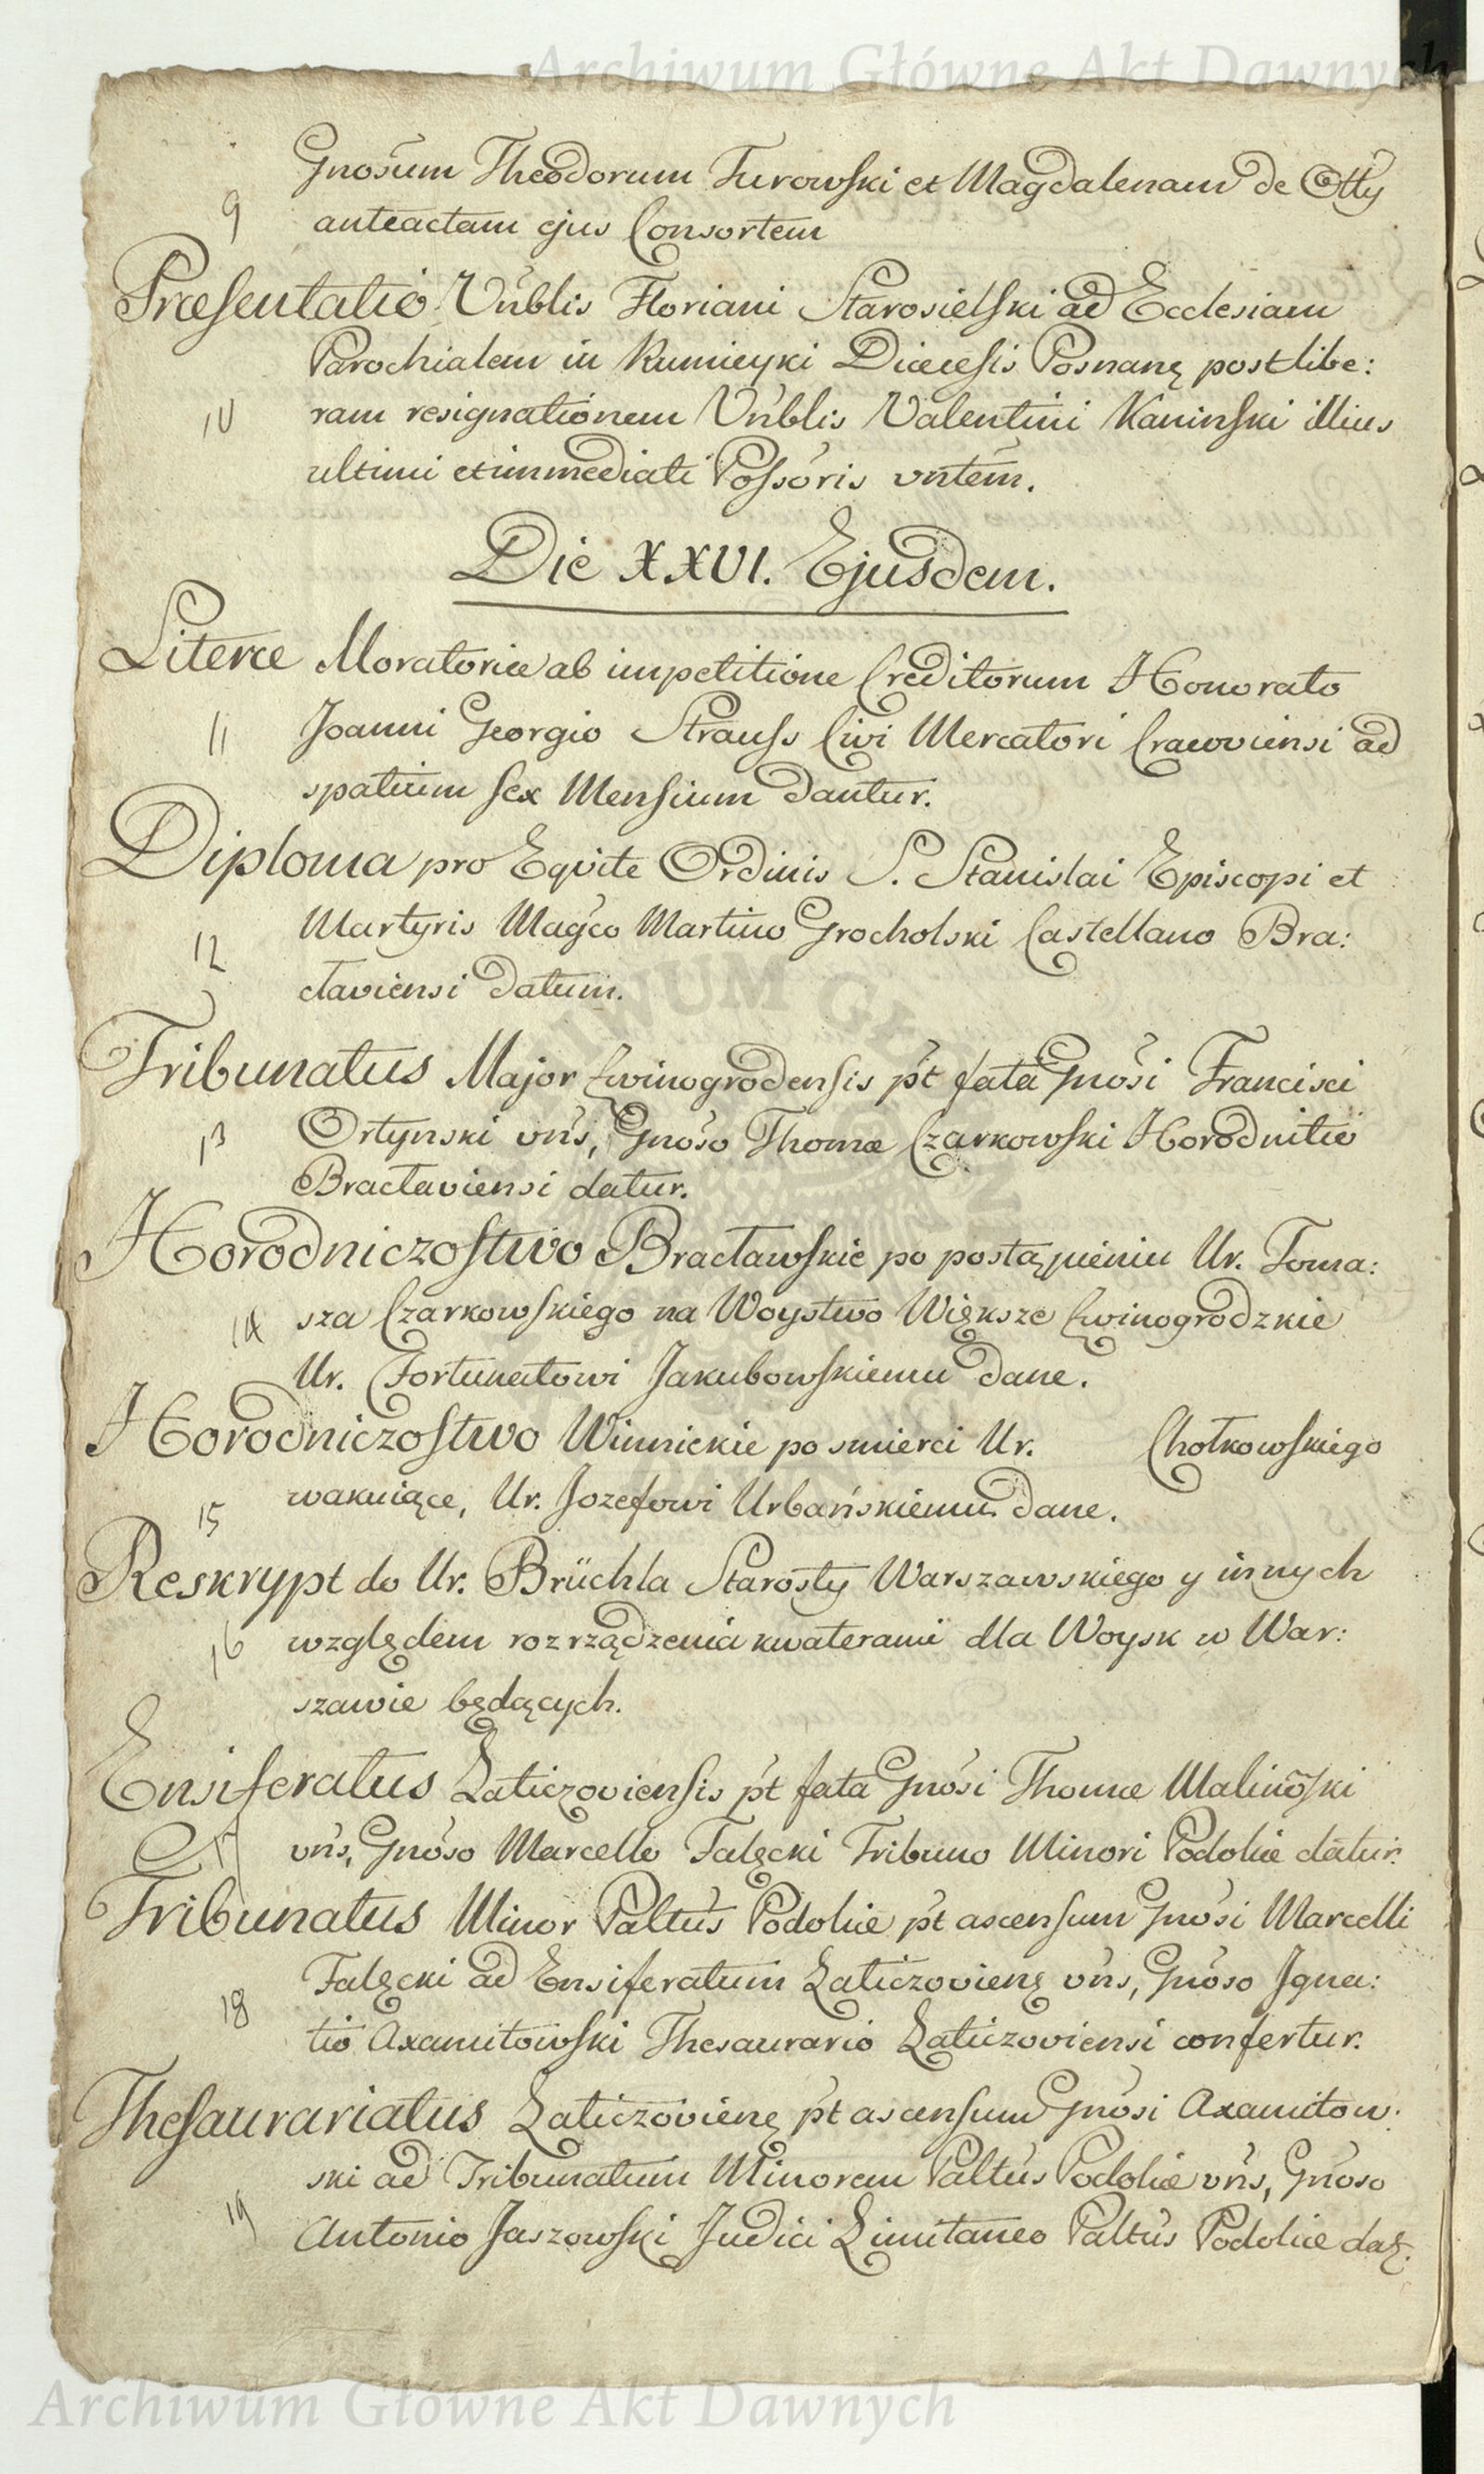 Archiwum Główne Akt Dawnych
Gnosum Theodorum Turowski et Magdalenam de Otty
9 anteactam ejus Consortem
Præsentatio Vnblis Floriani Starosielski ad Ecclesiam
Parochialem in Rumieyki Diæcesis Posnanę post libe:
10 ram resignationem Vnblis Valentini Kaninski illius
ultimi et immediati Possoris vntem.
Die XXVI. Ejusdem.
Literæ Moratoriæ ab impetitione Creditorum Honorato
11 Joanni Georgio Strauss Civi Mercatori Cracoviensi ad
spatium sex Mensium dantur.
Diploma pro Equite Ordinis S. Stanislai Episcopi et
12 Martyris Magco Martino Grocholski Castellano Bra:
claviensi datum.
Tribunatus Major Zwinogrodensis pt fata Gnosi Francisci
13 Ortynski vns, Gnoso Thomæ Czarkowski Horodnitio
Bracłaviensi datur.
Horodniczostwo Bracławskie po postąpieniu Ur. Toma:
14 sza Czarkowskiego na Woystwo Większe Zwinogrodzkie
Ur. Fortunatowi Jakubowskiemu dane.
Horodniczostwo Winnickie po smierci Ur. Chołkowskiego
15 wakuiące, Ur. Jozefowi Urbańskiemu dane.
Reskrypt do Ur. Brüchla Starosty Warszawskiego y innych
16 względem rozrządzenia kwaterami dla Woysk w War:
szawie będących.
Ensiferatus Laticzoviensis pt fata Gnosi Thomæ Malinoski
17 vns, Gnoso Marcello Falęcki Tribuno Minori Podoliæ datur.
Tribunatus Minor Paltus Podoliæ pt ascensum Gnosi Marcelli
18 Falęcki ad Ensiferatum Laticzovienę vns, Gnoso Igna:
tio Axamitowski Thesaurario Laticzoviensi confertur.
Thesaurariatus Laticzovienę pt ascensum Gnosi Axamitow:
19 ski ad Tribunatum Minorem Paltus Podoliæ vns, Gnoso
Antonio Jaszowski Judici Limitaneo Paltus Podoliæ daę.
Archiwum Główne Akt Dawnych